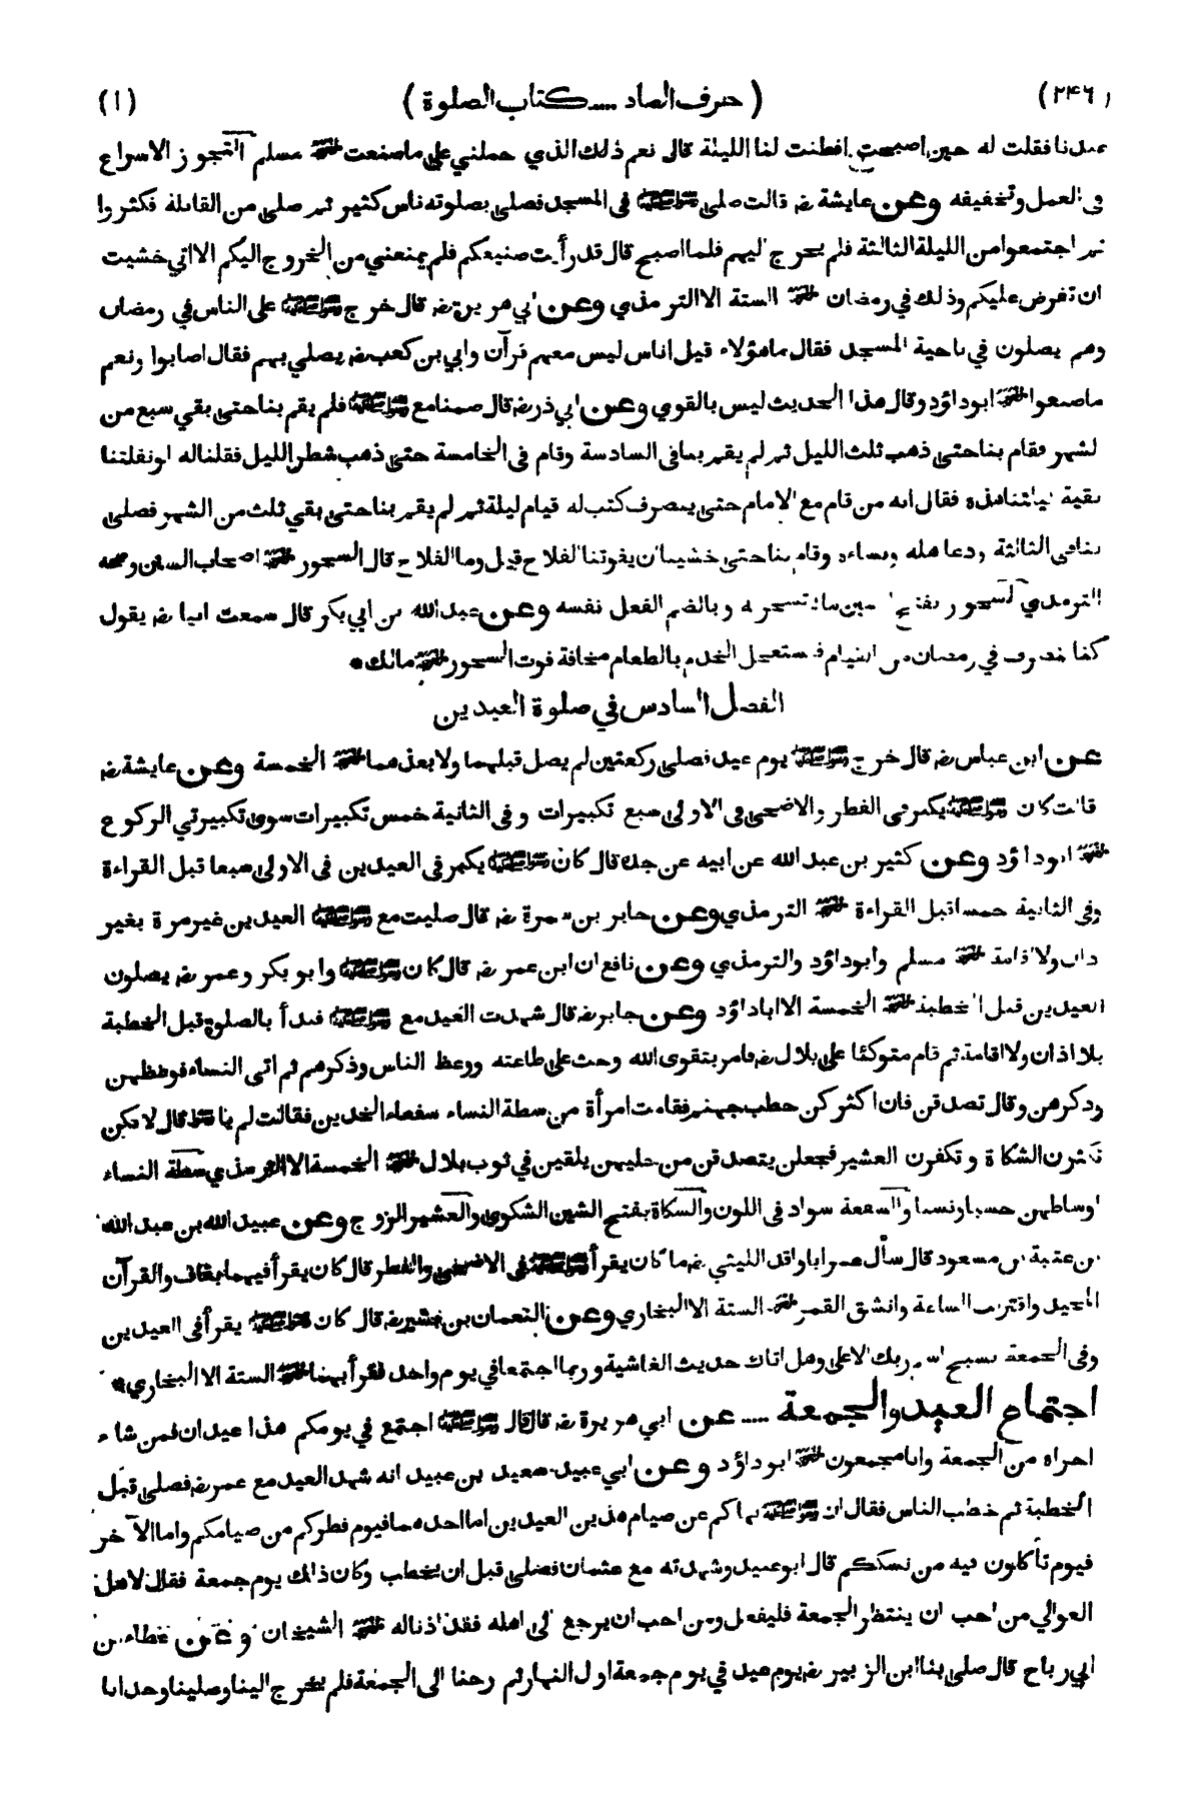 (٢٤٦) ( حرف الصاد ..... كتاب الصلوة ) (١)
عندنا فقلت له حين اصبحت افطنت لنا الليلة قال نعم ذلك الذي حملني على ما صنعت اخرجه مسلم التجوز الاسراع
فى العمل وتخفيفه وعن عايشة رض قالت صلى صلى الله عليه وسلم فى المسجد فصلى بصلوته ناس كثير ثم صلى من القابلة فكثروا
ثم اجتمعوا من الليلة الثالثة فلم يخرج اليهم فلما اصبح قال قد رأيت صنيعكم فلم يمنعني من الخروج اليكم الا اني خشيت
ان تفرض عليكم وذلك في رمضان اخرجه الستة الا الترمذي وعن ابي هريرة رض قال خرج صلى الله عليه وسلم على الناس في رمضان
وهم يصلون في ناحية المسجد فقال ما هؤلاء قيل اناس ليس معهم قرآن وابي بن كعب رض يصلي بهم فقال اصابوا ونعم
ما صنعوا اخرجه ابوداؤد وقال هذا الحديث ليس بالقوي وعن ابي ذر رض قال صمنا مع صلى الله عليه وسلم فلم يقم بنا حتى بقي سبع من
لشهر فقام بنا حتى ذهب ثلث الليل ثم لم يقم بنا فى السادسة وقام فى الخامسة حتى ذهب شطر الليل فقلنا له لو نفلتنا
بقية ليلتنا هذه فقال انه من قام مع الامام حتى ينصرف كتب له قيام ليلة ثم لم يقم بنا حتى بقي ثلث من الشهر فصلى
بنا فى الثالثة ودعا اهله ونساءه وقام بنا حتى خشينا ان يفوتنا الفلاح قيل وما الفلاح قال السحور اخرجه اصحاب السنن وصححه
الترمذي السحور بفتح السين ما يتسحر به وبالضم الفعل نفسه وعن عبدالله بن ابي بكر قال سمعت ابيا رض يقول
كنا ننصرف في رمضان من القيام فنستعجل الخدم بالطعام مخافة فوت السحور اخرجه مالك *
الفصل السادس في صلوة العيدين
عن ابن عباس رض قال خرج صلى الله عليه وسلم يوم عيد فصلى ركعتين لم يصل قبلهما ولا بعدهما اخرجه الخمسة وعن عايشة رض
قالت كان صلى الله عليه وسلم يكبر فى الفطر والاضحى فى الاولى سبع تكبيرات وفى الثانية خمس تكبيرات سوى تكبيرتي الركوع
اخرجه ابوداؤد وعن كثير بن عبد الله عن ابيه عن جده قال كان صلى الله عليه وسلم يكبر فى العيدين فى الاولى سبعا قبل القراءة
وفى الثانية خمسا قبل القراءة اخرجه الترمذي وعن جابر بن سمرة رض قال صليت مع صلى الله عليه وسلم العيدين غير مرة بغير
اذان ولا اقامة اخرجه مسلم وابوداؤد والترمذي وعن نافع ان ابن عمر رض قال كان صلى الله عليه وسلم وابو بكر وعمر رض يصلون
العيدين قبل الخطبة اخرجه الخمسة الا اباداؤد وعن جابر رض قال شهدت العيد مع صلى الله عليه وسلم فبدأ بالصلوة قبل الخطبة
بلا اذان ولا اقامة ثم قام متوكئا على بلال رض فامر بتقوى الله وحث على طاعته ووعظ الناس وذكرهم ثم اتى النساء فوعظهن
وذكرهن وقال تصدقن فان اكثركن حطب جهنم فقامت امرأة من سطة النساء سفعاء الخدين فقالت لم يا رسول الله قال لانكن
تكثرن الشكاة وتكفرن العشير فجعلن يتصدقن من حليهن يلقين في ثوب بلال اخرجه الخمسة الا الترمذي سطة النساء
اوساطهن حسبا ونسبا والسفعة سواد فى اللون والشكاة بفتح الشين الشكوى والعشير الزوج وعن عبيد الله بن عبد الله
بن عتبة بن مسعود قال سأل عمر ابا واقد الليثي رض ما كان يقرأ صلى الله عليه وسلم فى الاضحى والفطر قال كان يقرأ فيهما بقاف والقرآن
المجيد واقتربت الساعة وانشق القمر اخرجه الستة الا البخاري وعن النعمان بن بشير رض قال كان صلى الله عليه وسلم يقرأ فى العيدين
وفى الجمعة بسبح اسم ربك الاعلى وهل اتاك حديث الغاشية وربما اجتمعا في يوم واحد فقرأ بهما اخرجه الستة الا البخاري *
اجتماع العيد والجمعة ..... عن ابي هريرة رض قال قال صلى الله عليه وسلم اجتمع في يومكم هذا عيدان فمن شاء
اجزاه من الجمعة وانا مجمعون اخرجه ابوداؤد وعن ابي عبيد سعيد بن عبيد انه شهد العيد مع عمر رض فصلى قبل
الخطبة ثم خطب الناس فقال ان صلى الله عليه وسلم نهاكم عن صيام هذين العيدين اما احدهما فيوم فطركم من صيامكم واما الآخر
فيوم تأكلون فيه من نسككم قال ابو عبيد وشهدته مع عثمان فصلى قبل ان يخطب وكان ذلك يوم جمعة فقال لاهل
العوالي من احب ان ينتظر الجمعة فليفعل ومن احب ان يرجع الى اهله فقد اذنا له اخرجه الشيخان وعن عطاء بن
ابي رباح قال صلى بنا ابن الزبير رض يوم عيد في يوم جمعة اول النهار ثم رحنا الى الجمعة فلم يخرج الينا وصلينا وحدانا